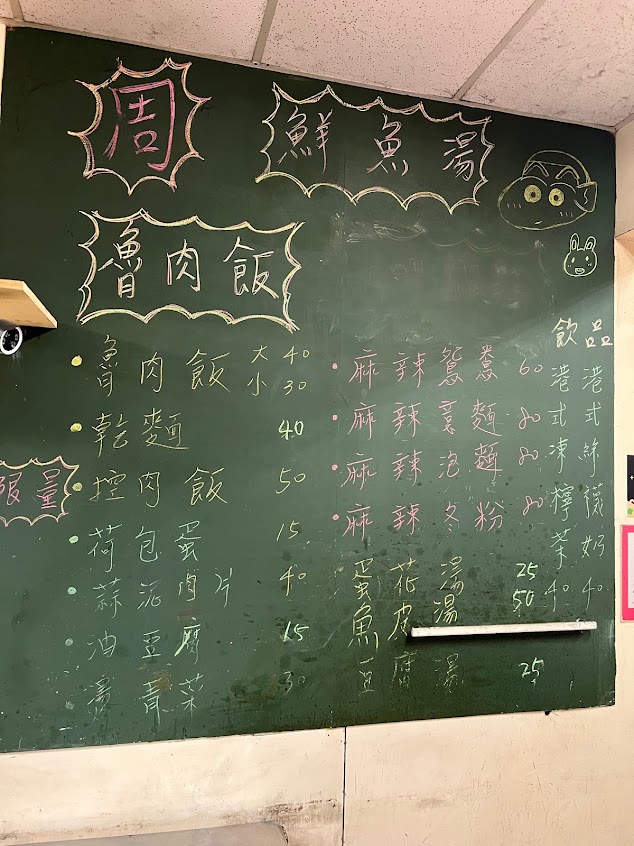 周
鮮魚湯
魯肉飯
魯肉飯 大 40
小 30
乾麵 40
限量
控肉飯 50
荷包蛋 15
蒜泥肉片 40
油豆腐 15
燙青菜 30
麻辣鴛鴦 60
麻辣意麵 80
麻辣泡麵 80
麻辣冬粉 80
蛋花湯 25
魚皮湯 50
豆腐湯 25
飲品
港式絲襪奶 40
港式凍檸茶 40